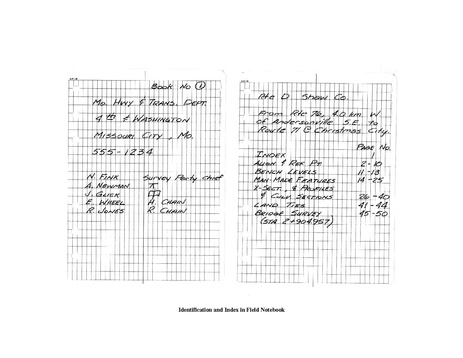 Book No 1
Mo. Hwy & Trans. Dept.
4th & Washington
Missouri City, Mo.
555-1234
N. Fink Survey Party Chief
A. Newman
J. Glick
E. Wheel H. Chain
R. Jones R. Chain
Rte D Shaw Co.
From Rte 76, 4.0 km W.
of Andersonville S.E. to
Route 71 @ Christmas City.
Page No.
Index 1
Align. & Ref. Pt. 2-10
Bench Levels 11-13
Man-Made Features 14-25
X-Sect., & Profiles
& Culv. Sections 26-40
Land Ties 41-44
Bridge Survey 45-50
(Sta 2+904.957)
Identification and Index in Field Notebook